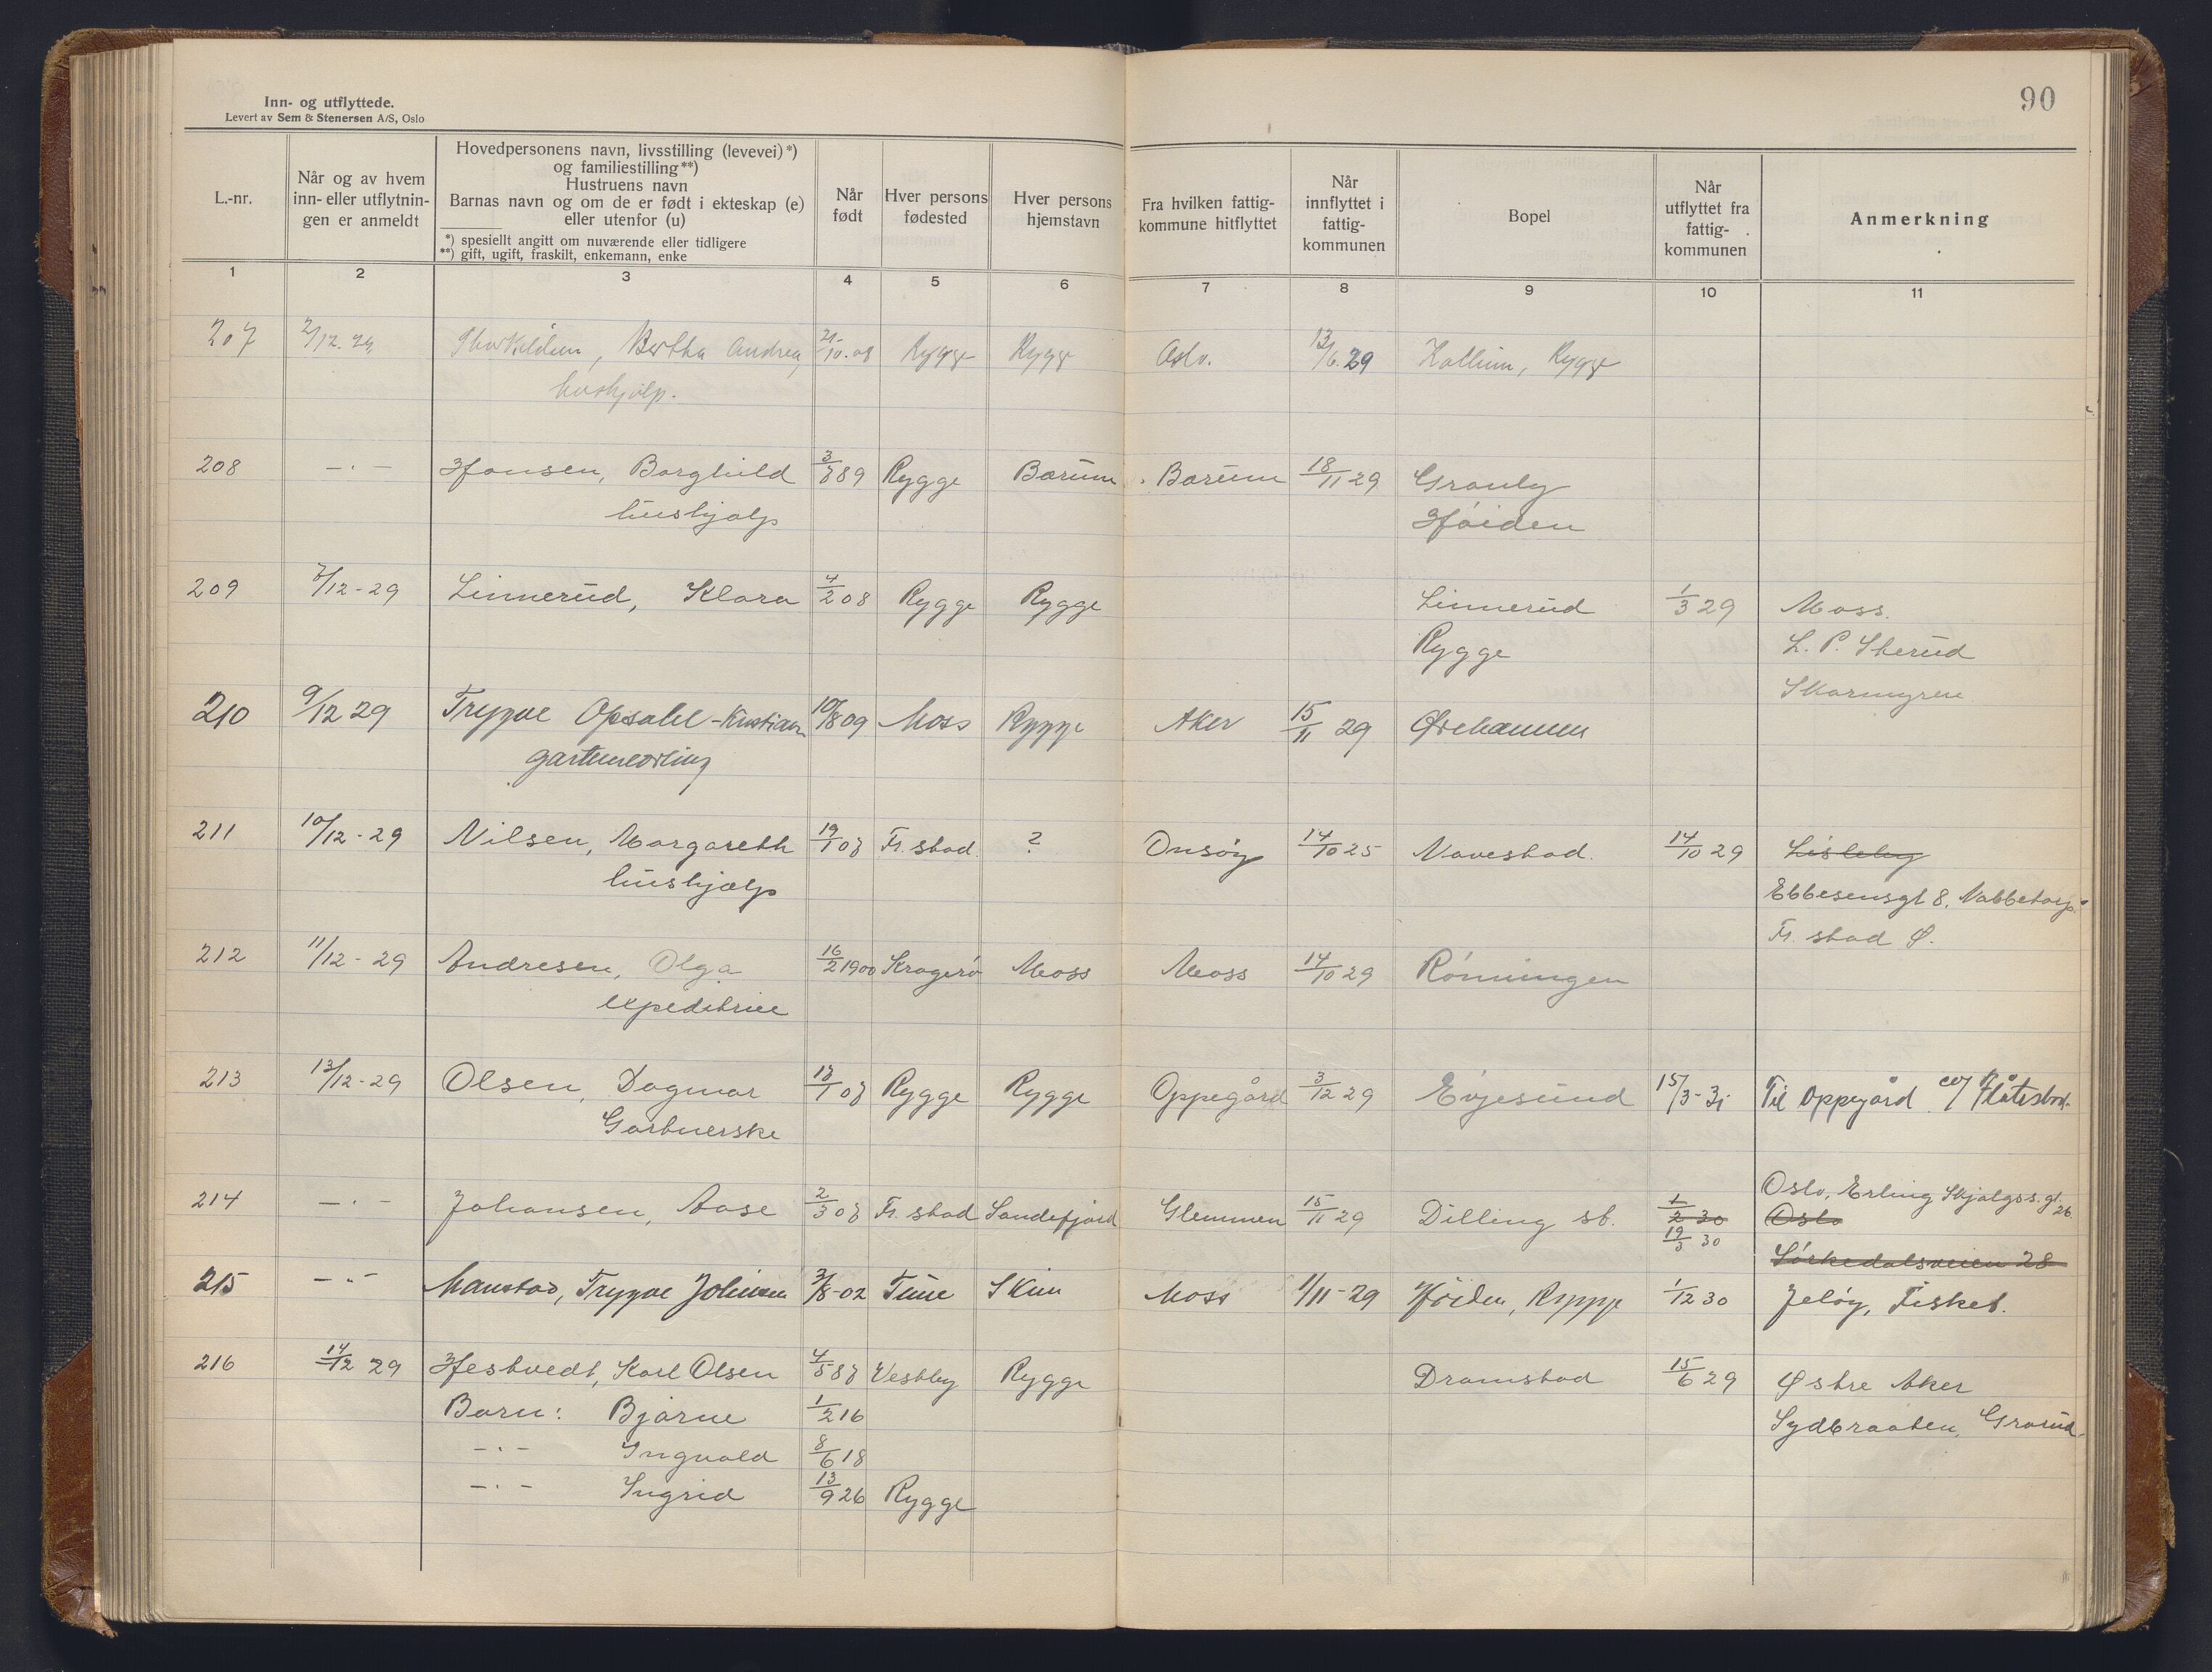 90
Inn- og utflyttede.
Levert av Sem & Stenersen A/S, Oslo
L.-nr.
Når og av hvem
inn- eller utflytnin-
gen er anmeldt
Hovedpersonens navn, livsstilling (levevei)*)
og familiestilling**)
Hustruens navn
Barnas navn og om de er født i ekteskap (e)
eller utenfor (u)
*) spesiellt angitt om nuværende eller tidligere
**) gift, ugift, fraskilt, enkemann, enke
Når
født
Hver persons
fødested
Hver persons
hjemstavn
Fra hvilken fattig-
kommune hitflyttet
Når
innflyttet i
fattig-
kommunen
Bopel
Når
utflyttet fra
fattig-
kommunen
Anmerkning
1 2 3 4 5 6 7 8 9 10 11
207 2/12. 29, Thorkildsen, Bertha Andrea, 21/10.08 Rygge Rygge Oslo. 13/6.29 Kollium, Rygge
hushjelp.
208 -"- Hansen, Borghild 3/8 89 Rygge Bærum Bærum 18/11 29 Granly
hushjælp Høiden
209 7/12-29 Linnerud, Klara 4/2 08 Rygge Rygge Linnerud 1/3 29 Moss.
Rygge L. P. Skerud
Skarmyren
210 9/12 29 Trygve Opsahl-Kristian 10/8 09 Moss Rygge Aker 15/11 29 Ørehammen
gartnerlærling
211 10/12-29 Nilsen, Margareth 19/1 08 Fr. stad ? Onsøy 14/10 25 Navestad. 14/10 29 Lisleby
hushjælp Ebbesensgt 8, Nabbetorp.
Fr. stad Ø.
212 11/12-29 Andresen, Olga 16/2 1900 Kragerø Moss Moss 14/10 29 Rönningen
expeditrice
213 13/12-29 Olsen, Dagmar 18/1 08 Rygge Rygge Oppegård 3/12 29 Evjesund 15/3-31 Til Oppegård c/o Flåtestad.
Gartnerske
214 -"- Johansen, Aase 2/3 08 Fr. stad Sandefjord Glemmen 15/11 29 Dilling st. 1/2 30 Oslo, Erling Skjalgss. gt. 26
19/3 30 Oslo
Sørkedalsveien 28
215 -"- Manstad, Trygve Johansen 3/8-02 Tune Skim Moss 1/11-29 Høiden, Rygge 1/12 30 Jeløy, Fisket.
216 14/12 29 Hestvedt, Karl Olsen 4/5 88 Vestby Rygge Dramstad 15/6 29 Østre Aker
Barn: Bjarne 1/2 16 Sydbraaten, Grorud.
-"- Ingvald 8/6 18
-"- Ingrid 13/9 26 Rygge